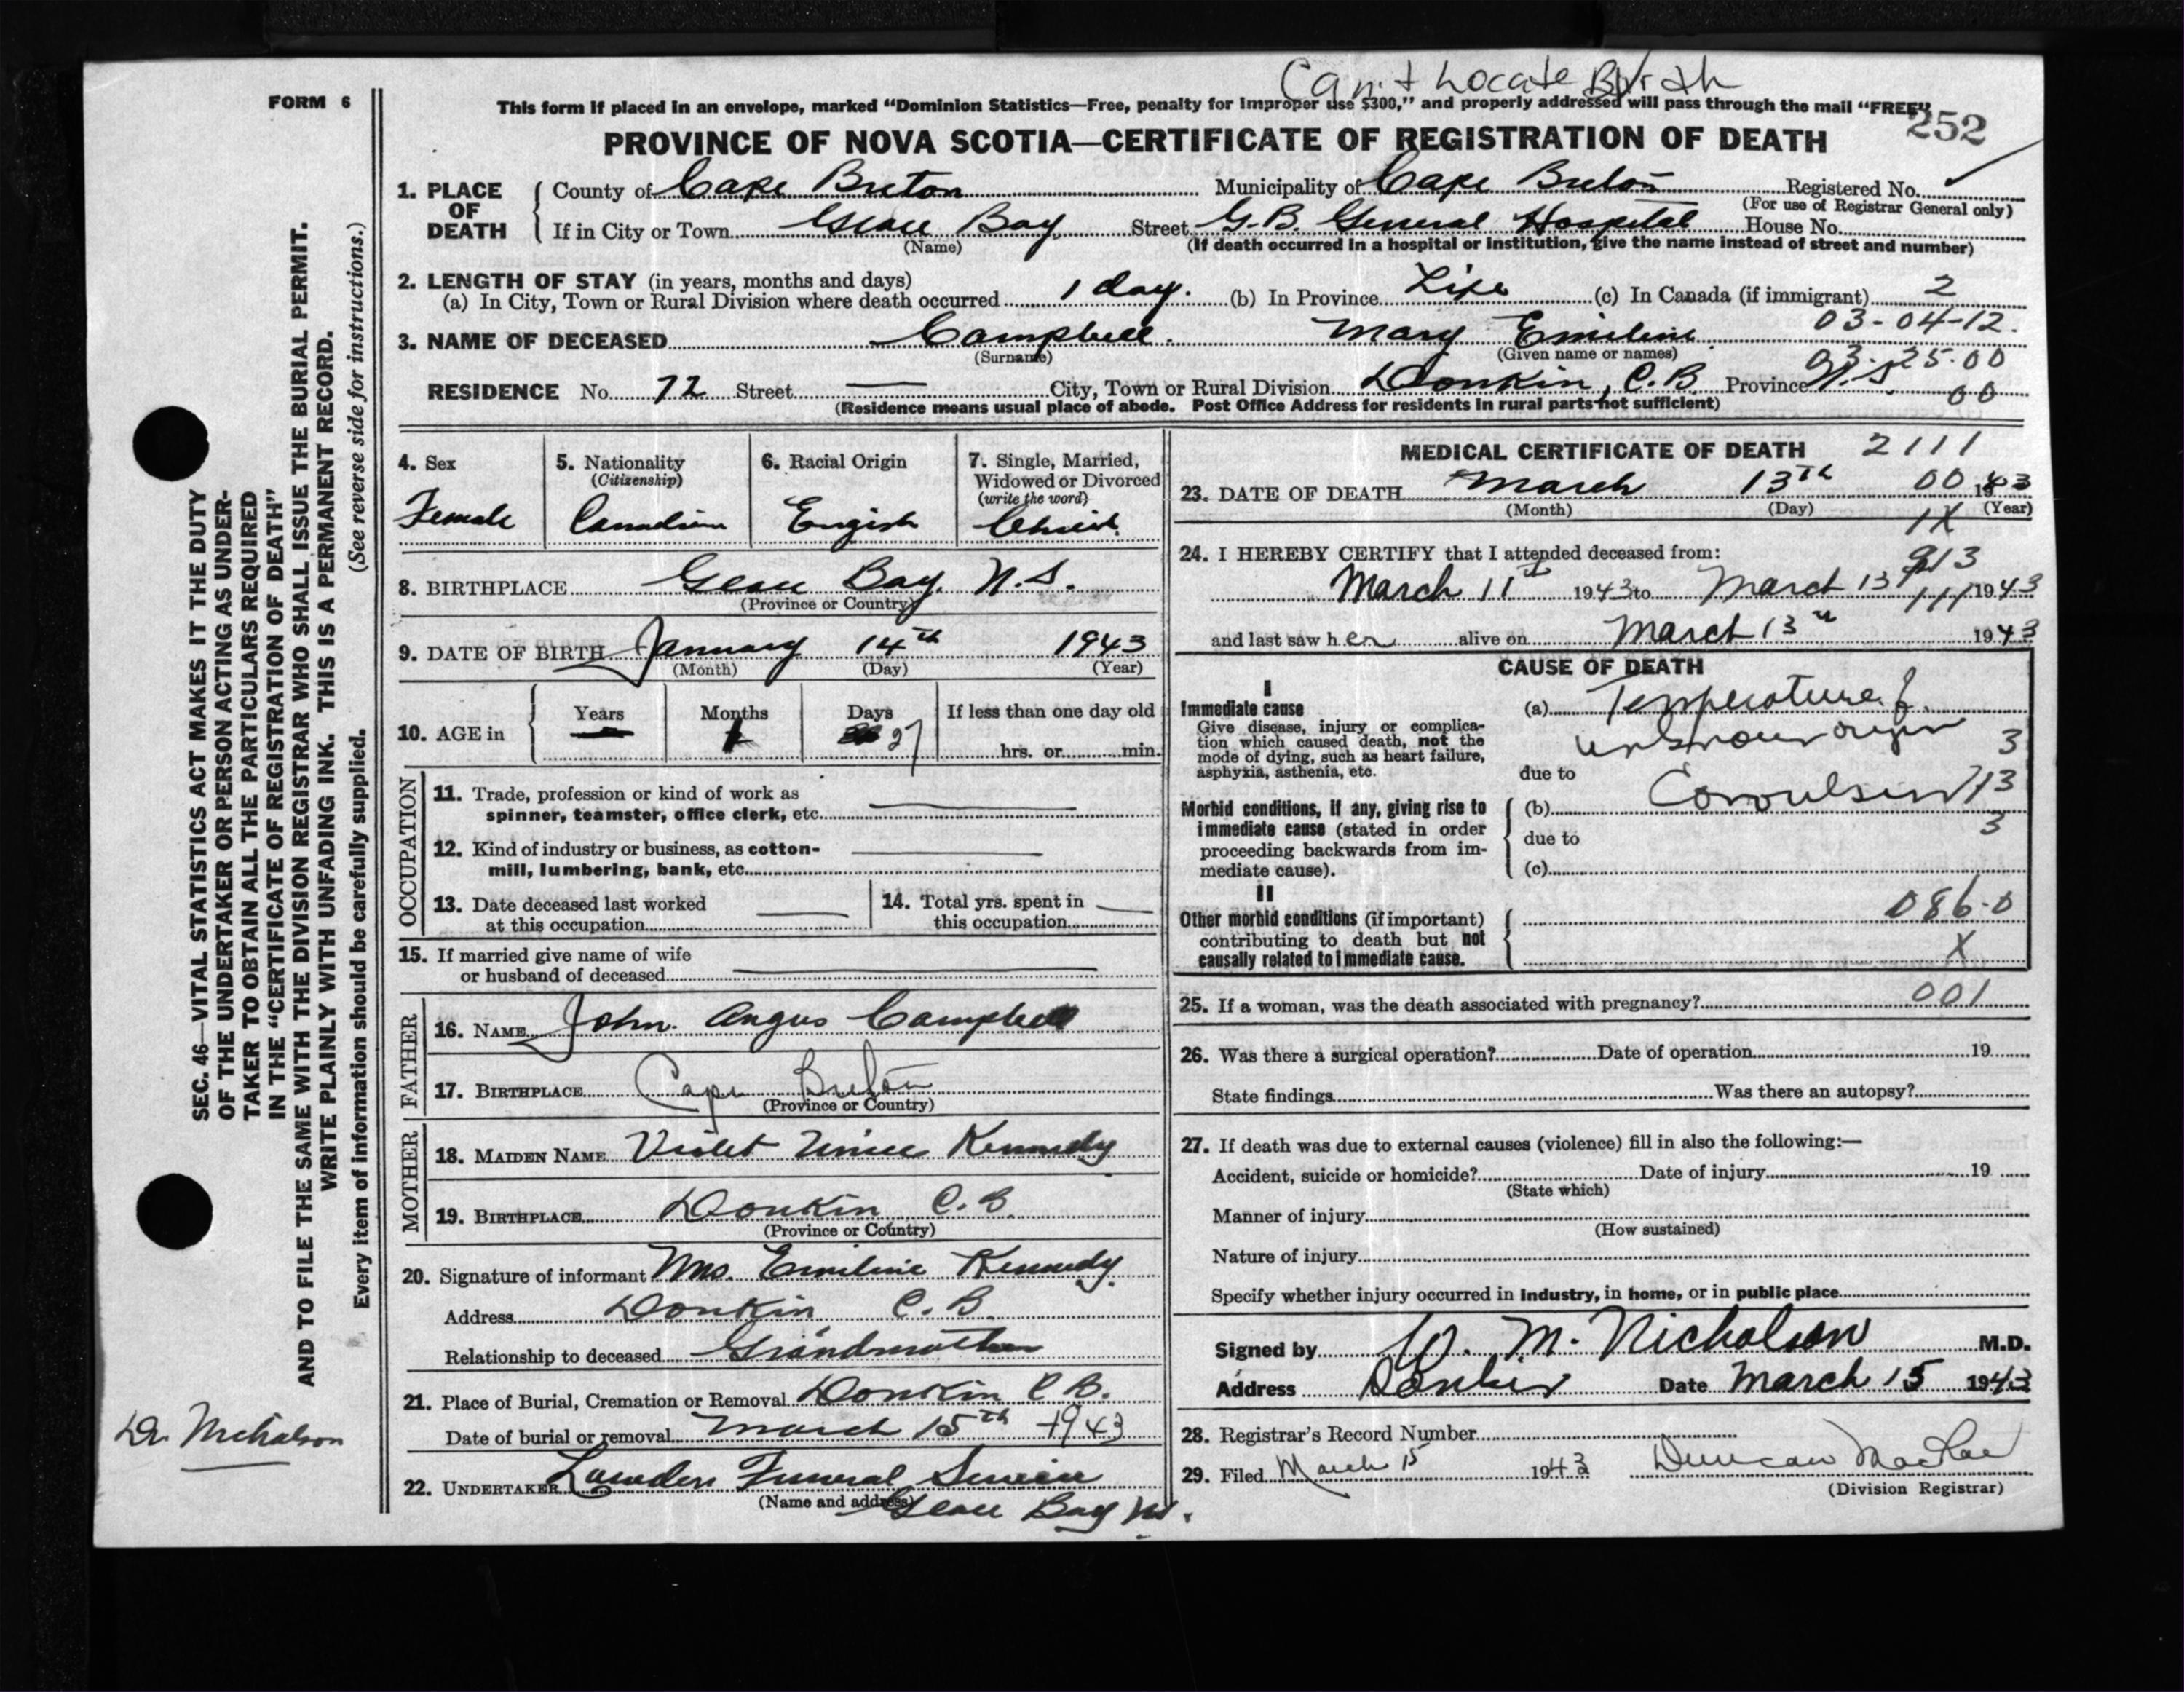 Can't Locate Birth
FORM 6
This form if placed in an envelope, marked “Dominion Statistics—Free, penalty for improper use $300,” and properly addressed will pass through the mail “FREE”
252
PROVINCE OF NOVA SCOTIA—CERTIFICATE OF REGISTRATION OF DEATH
1. PLACE OF DEATH
County of Cape Breton Municipality of Cape Breton Registered No.
(For use of Registrar General only)
If in City or Town Glace Bay Street G.B. General Hospital House No.
(Name) (If death occurred in a hospital or institution, give the name instead of street and number)
2. LENGTH OF STAY (in years, months and days)
(a) In City, Town or Rural Division where death occurred 1 day. (b) In Province Life (c) In Canada (if immigrant) 2
03-04-12.
3. NAME OF DECEASED Campbell. Mary Emiline
(Surname) (Given name or names)
03-25-00
RESIDENCE No. 72 Street — City, Town or Rural Division Donkin, C.B Province N.S.
00
(Residence means usual place of abode. Post Office Address for residents in rural parts not sufficient)
4. Sex
Female
5. Nationality
(Citizenship)
Canadian
6. Racial Origin
Engish
7. Single, Married,
Widowed or Divorced
(write the word)
Child
8. BIRTHPLACE Glace Bay. N.S.
(Province or Country)
9. DATE OF BIRTH January 14th 1943
(Month) (Day) (Year)
10. AGE in Years Months Days If less than one day old
— 1 27 hrs. or min.
OCCUPATION
11. Trade, profession or kind of work as
spinner, teamster, office clerk, etc.
12. Kind of industry or business, as cotton-
mill, lumbering, bank, etc.
13. Date deceased last worked
at this occupation
14. Total yrs. spent in
this occupation
15. If married give name of wife
or husband of deceased
FATHER
16. NAME John Angus Campbell
17. BIRTHPLACE Cape Breton
(Province or Country)
MOTHER
18. MAIDEN NAME Violet Kennedy
19. BIRTHPLACE Donkin C.B.
(Province or Country)
20. Signature of informant Mrs. Emiline Kennedy
Address Donkin C.B.
Relationship to deceased Grandmother
21. Place of Burial, Cremation or Removal Donkin C.B.
Date of burial or removal March 15th 1943
22. UNDERTAKER Lowden Funeral Service
(Name and address) Glace Bay N.S.
MEDICAL CERTIFICATE OF DEATH 2111
23. DATE OF DEATH March 13th 00 1943
(Month) (Day) (Year)
1X
24. I HEREBY CERTIFY that I attended deceased from:
913
March 11th 1943 to March 13 111 1943
and last saw her alive on March 13th 1943
CAUSE OF DEATH
I
Immediate cause
Give disease, injury or complica-
tion which caused death, not the
mode of dying, such as heart failure,
asphyxia, asthenia, etc.
(a) Temperature of
unknown origin 3
due to
Morbid conditions, if any, giving rise to
immediate cause (stated in order
proceeding backwards from im-
mediate cause).
(b) Convulsion 713
3
due to
(c)
II
Other morbid conditions (if important)
contributing to death but not
causally related to immediate cause.
086-0
X
25. If a woman, was the death associated with pregnancy? 001
26. Was there a surgical operation? Date of operation 19
State findings Was there an autopsy?
27. If death was due to external causes (violence) fill in also the following:—
Accident, suicide or homicide? Date of injury 19
(State which)
Manner of injury
(How sustained)
Nature of injury
Specify whether injury occurred in industry, in home, or in public place
Signed by W. M. Nicholson M.D.
Address Donkin Date March 15 1943
28. Registrar's Record Number
29. Filed March 15 1943 Duncan MacRae
(Division Registrar)
SEC. 46—VITAL STATISTICS ACT MAKES IT THE DUTY
OF THE UNDERTAKER OR PERSON ACTING AS UNDER-
TAKER TO OBTAIN ALL THE PARTICULARS REQUIRED
IN THE “CERTIFICATE OF REGISTRATION OF DEATH”
AND TO FILE THE SAME WITH THE DIVISION REGISTRAR WHO SHALL ISSUE THE BURIAL PERMIT.
WRITE PLAINLY WITH UNFADING INK. THIS IS A PERMANENT RECORD.
Every item of information should be carefully supplied. (See reverse side for instructions.)
Dr. Nicholson